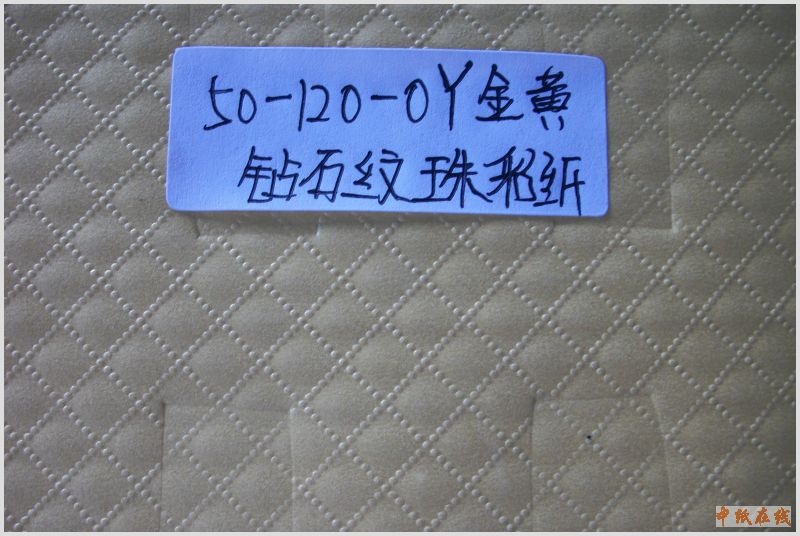 50-120-0Y金黄
钻石纹珠彩纸
中纸在线